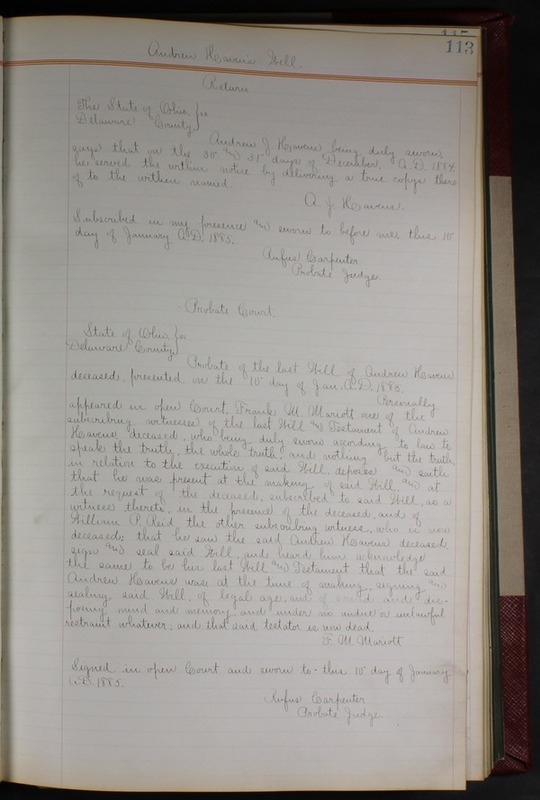 113
Andrew Havens Will.
Return
The State of Ohio, } ss
Delaware County }
Andrew J. Havens being duly sworn,
says that on the 30" and 31" days of December, A.D. 1884,
he served the within notice by delivering a true copy there
of to the within named.
A. J. Havens.
Subscribed in my presence and sworn to before me, this 10"
day of January A.D. 1885.
Rufus Carpenter
Probate Judge.
Probate Court.
State of Ohio, } ss
Delaware County }
Probate of the last Will of Andrew Havens
deceased, presented on the 10" day of Jan. A.D. 1885.
Personally
appeared in open Court, Frank M. Mariott one of the
subscribing witnesses of the last Will and Testament of Andrew
Havens deceased, who being duly sworn according to law to
speak the truth, the whole truth and nothing but the truth,
in relation to the execution of said Will, deposes and saith
that he was present at the making of said Will, and at
the request of the deceased, subscribed to said Will, as a
witness thereto, in the presence of the deceased, and of
William P. Reid the other subscribing witness, who is now
deceased; that he saw the said Andrew Havens deceased
sign and seal said Will, and heard him acknowledge
the same to be his last Will and Testament that the said
Andrew Havens was at the time of making, signing and
sealing said Will, of legal age, and of sound and dis-
posing mind and memory, and under no undue or unlawful
restraint whatever; and that said testator is now dead.
F. M. Mariott
Signed in open Court and sworn to this 10" day of January
A.D. 1885.
Rufus Carpenter
Probate Judge.